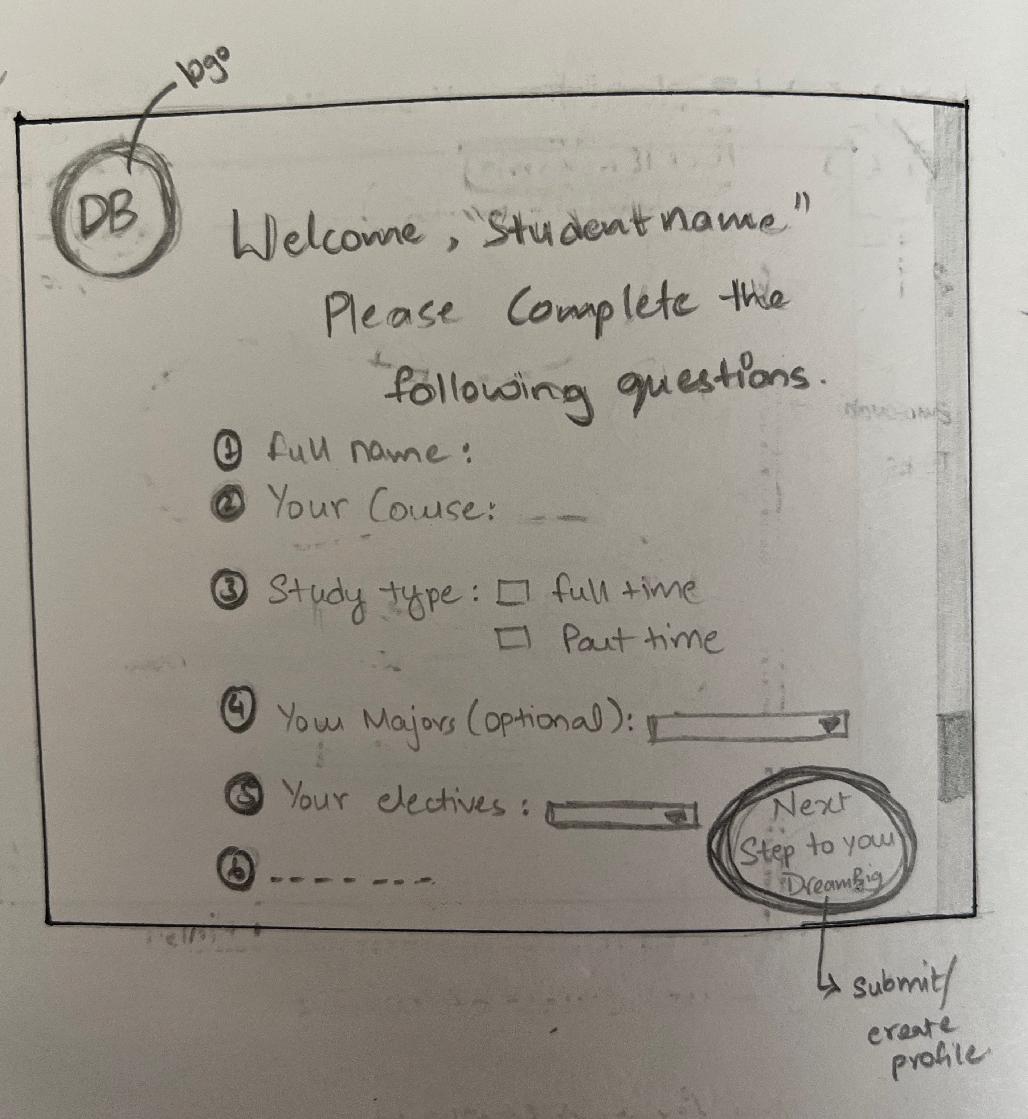 logo
DB
Welcome, "Student name"
Please Complete the
following questions.
1 full name:
2 Your Course:
3 Study type: full time
Part time
4 Your Majors (optional):
5 Your electives:
6
Next
Step to your
DreamBig
submit/
create
profile